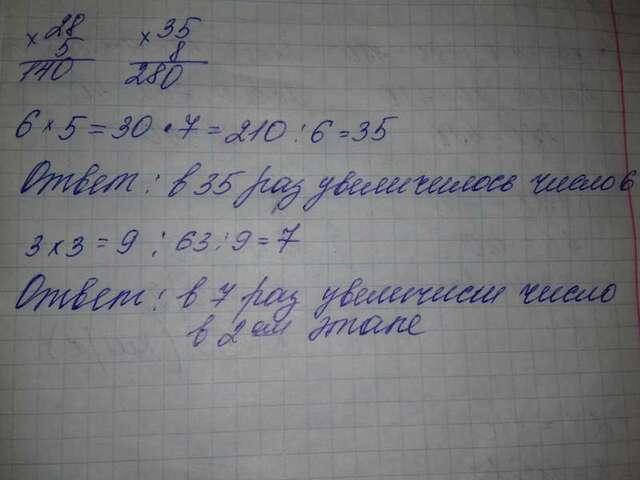 × 28
5
140
× 35
8
280
6 × 5 = 30 · 7 = 210 : 6 = 35
Ответ : в 35 раз увеличилось число 6
3 × 3 = 9 ; 63 : 9 = 7
Ответ : в 7 раз увеличили число
в 2 ом этапе